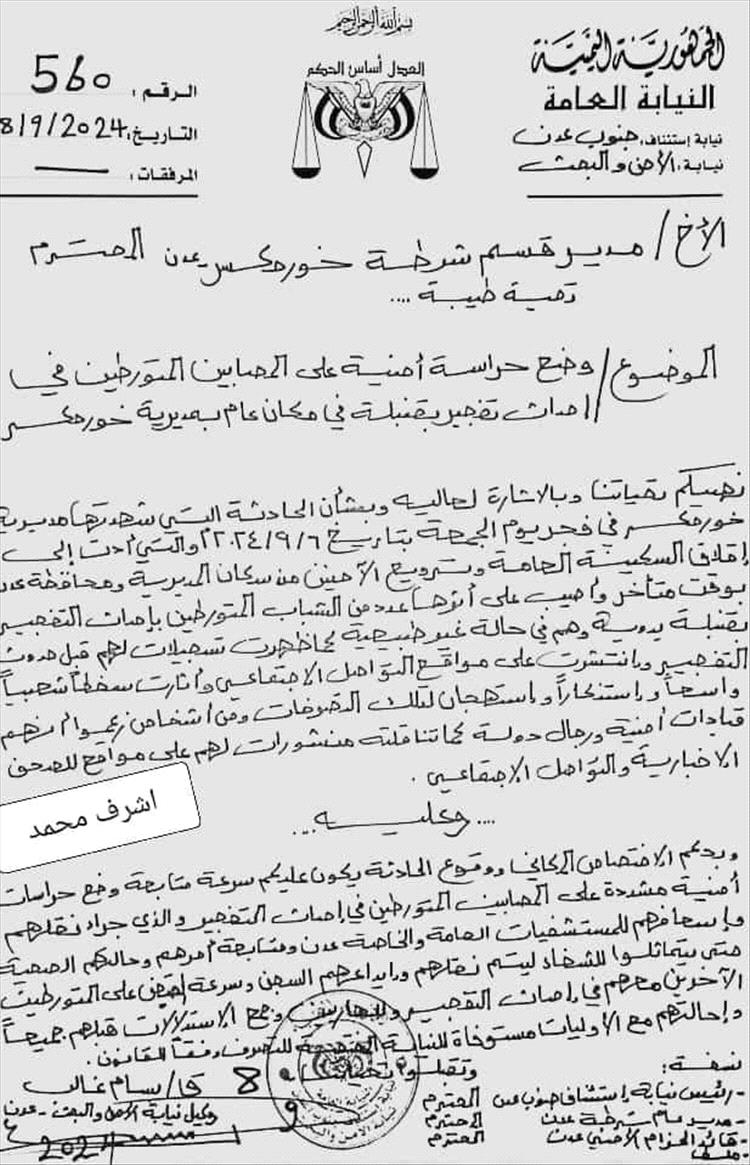 بسم الله الرحمن الرحيم
الجمهورية اليمنية
النيابة العامة
نيابة إستئناف: جنوب عدن
نيابة: الأمن والبحث
العدل أساس الحكم
الرقم: 560
التاريخ: 8/9/2024
المرفقات: ــــــ
الأخ/ مدير قسم شرطة خورمكسر عدن المحترم
تحية طيبة ....
الموضوع/ وضع حراسة أمنية على المصابين المتورطين في
إحداث تفجير بقنبلة في مكان عام بمديرية خورمكسر
نهديكم تحياتنا وبالاشارة لعاليه وبشأن الحادثة التي شهدتها مديرية
خورمكسر في فجر يوم الجمعة بتاريخ ٢٠٢٤/٩/٦م والتي أدت إلى
إقلاق السكينة العامة وترويع الآمنين من سكان المديرية ومحافظة عدن
بوقت متأخر وأصيب على أثرها عدد من الشباب المتورطين بإحداث التفجير
بقنبلة يدوية وهم في حالة غير طبيعية كما ظهرت تسجيلات لهم قبل حدوث
التفجير وانتشرت على مواقع التواصل الاجتماعي وأثارت سخطاً شعبياً
واسعاً وإستنكاراً وإستهجان لتلك التصرفات ومن أشخاص زعموا أنهم
قيادات أمنية ورجال دولة كما تناقلته منشورات لهم على مواقع للصحف
الاخبارية والتواصل الاجتماعي .
اشرف محمد
.... وعليـــه ....
وبحكم الاختصاص المكاني ووقوع الحادثة يكون عليكم سرعة متابعة وضع حراسات
أمنية مشددة على المصابين المتورطين في إحداث التفجير والذي جراء نقلهم
وإسعافهم للمستشفيات العامة والخاصة عدن ومتابعة أمرهم وحالتهم الصحية
حتى يتماثلوا للشفاء ليتم نقلهم وإيداعهم السجن وسرعة القبض على المتورطين
الآخرين معهم في إحداث التفجير وجمع الاستدلالات قبلهم جميعاً
وإحالتهم مع الأوليات مستوفاة للنيابة للتصرف وفقاً للقانون .
وتقبلوا تحياتنا
نسخة:
- رئيس نيابة إستئناف جنوب عدن المحترم
- مدير عام شرطة عدن المحترم
- قائد الحزام الأمني عدن المحترم
- ملف
ق/ بسام غالب
وكيل نيابة الأمن والبحث - عدن
8
9
2024